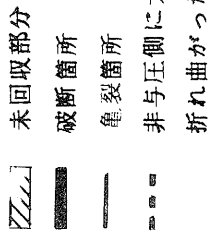 未回収部分
破断箇所
亀裂箇所
非与圧側に
折れ曲がっ